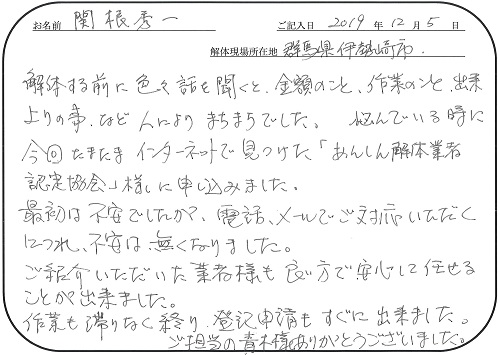 お名前 関根秀一 ご記入日 2019 年 12 月 5 日
解体現場所在地 群馬県伊勢崎市.
解体する前に色々話を聞くと、金額のこと、作業のこと、出来
上りの事、など 人により まちまちでした。 悩んでいる時に
今回 たまたま インターネットで見つけた「あんしん解体業者
認定協会」様に申し込みました。
最初は不安でしたが、電話、メールでご対応いただく
につれ、不安は無くなりました。
ご紹介いただいた業者様も良い方で安心して任せる
ことが出来ました。
作業も滞りなく終り、登記申請もすぐに出来ました。
ご担当の青木様ありがとうございました。